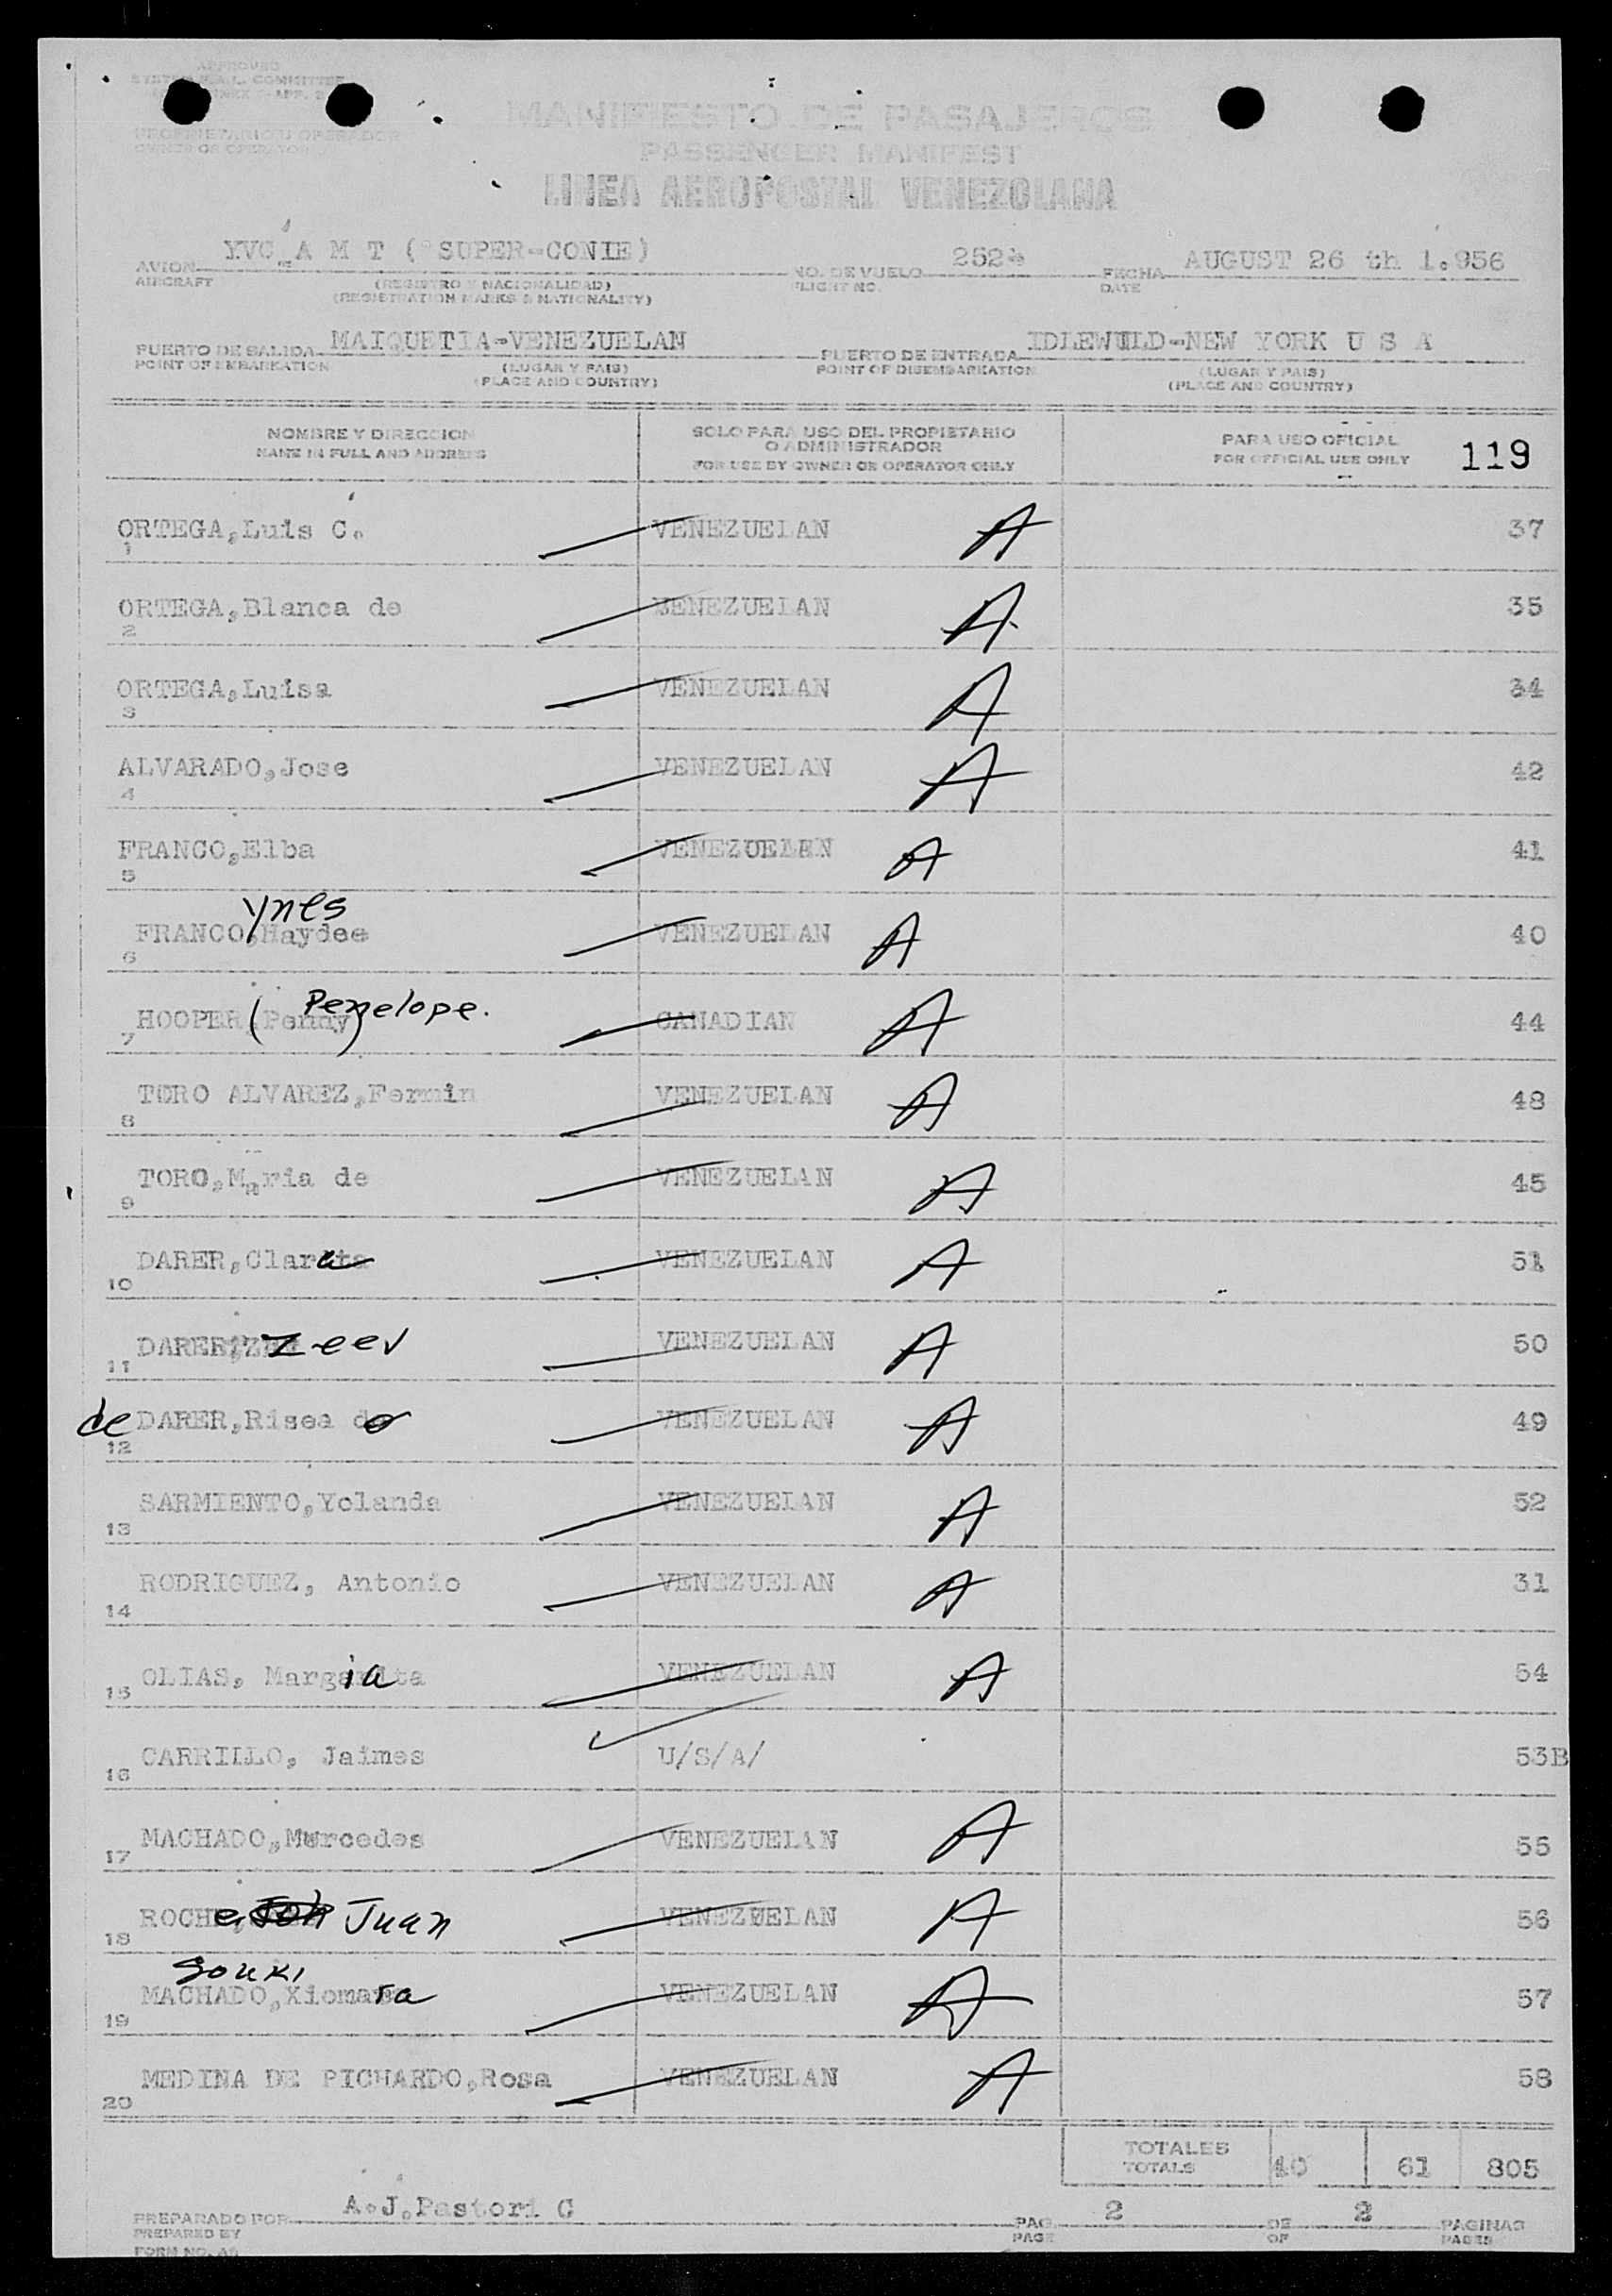 APPROVED
MANIFIESTO DE PASAJEROS
PROPIETARIO U OPERADOR
OWNER OR OPERATOR
PASSENGER MANIFEST
LINEA AEROPOSTAL VENEZOLANA
YVC A M T ( SUPER-CONIE) 252 AUGUST 26 th 1.956
AVION NO. DE VUELO FECHA
AIRCRAFT (REGISTRO Y NACIONALIDAD) FLIGHT NO. DATE
(REGISTRATION MARKS & NATIONALITY)
MAIQUETIA-VENEZUELAN IDLEWILD-NEW YORK U S A
PUERTO DE SALIDA PUERTO DE ENTRADA
POINT OF EMBARKATION (LUGAR Y PAIS) POINT OF DISEMBARKATION (LUGAR Y PAIS)
(PLACE AND COUNTRY) (PLACE AND COUNTRY)
NOMBRE Y DIRECCION SOLO PARA USO DEL PROPIETARIO O ADMINISTRADOR PARA USO OFICIAL
NAME IN FULL AND ADDRESS FOR USE BY OWNER OR OPERATOR ONLY FOR OFFICIAL USE ONLY 119
1 ORTEGA,Luis C. VENEZUELAN A 37
2 ORTEGA,Blanca de VENEZUELAN A 35
3 ORTEGA,Luisa VENEZUELAN A 34
4 ALVARADO,Jose VENEZUELAN A 42
5 FRANCO,Elba VENEZUELAN A 41
ynes
6 FRANCO,Haydee VENEZUELAN A 40
7 HOOPER (Penny) Penelope. CANADIAN A 44
8 TORO ALVAREZ,Fermin VENEZUELAN A 48
9 TORO,Maria de VENEZUELAN A 45
10 DARER,Clara VENEZUELAN A 51
11 DARER, Zeev VENEZUELAN A 50
12 de DARER,Risea de VENEZUELAN A 49
13 SARMIENTO,Yolanda VENEZUELAN A 52
14 RODRIGUEZ, Antonio VENEZUELAN A 31
15 OLIAS, Margarita ia VENEZUELAN A 54
16 CARRILLO, Jaimes U/S/A/ 53B
17 MACHADO,Mercedes VENEZUELAN A 55
18 ROCHE, Juan VENEZUELAN A 56
Souki
19 MACHADO,Xiomara VENEZUELAN A 57
20 MEDINA DE PICHARDO,Rosa VENEZUELAN A 58
TOTALES
TOTALS 40 61 805
PREPARADO POR A.J.Pastori C PAG. 2 DE 2 PAGINAS
PREPARED BY PAGE OF PAGES
FORM NO.